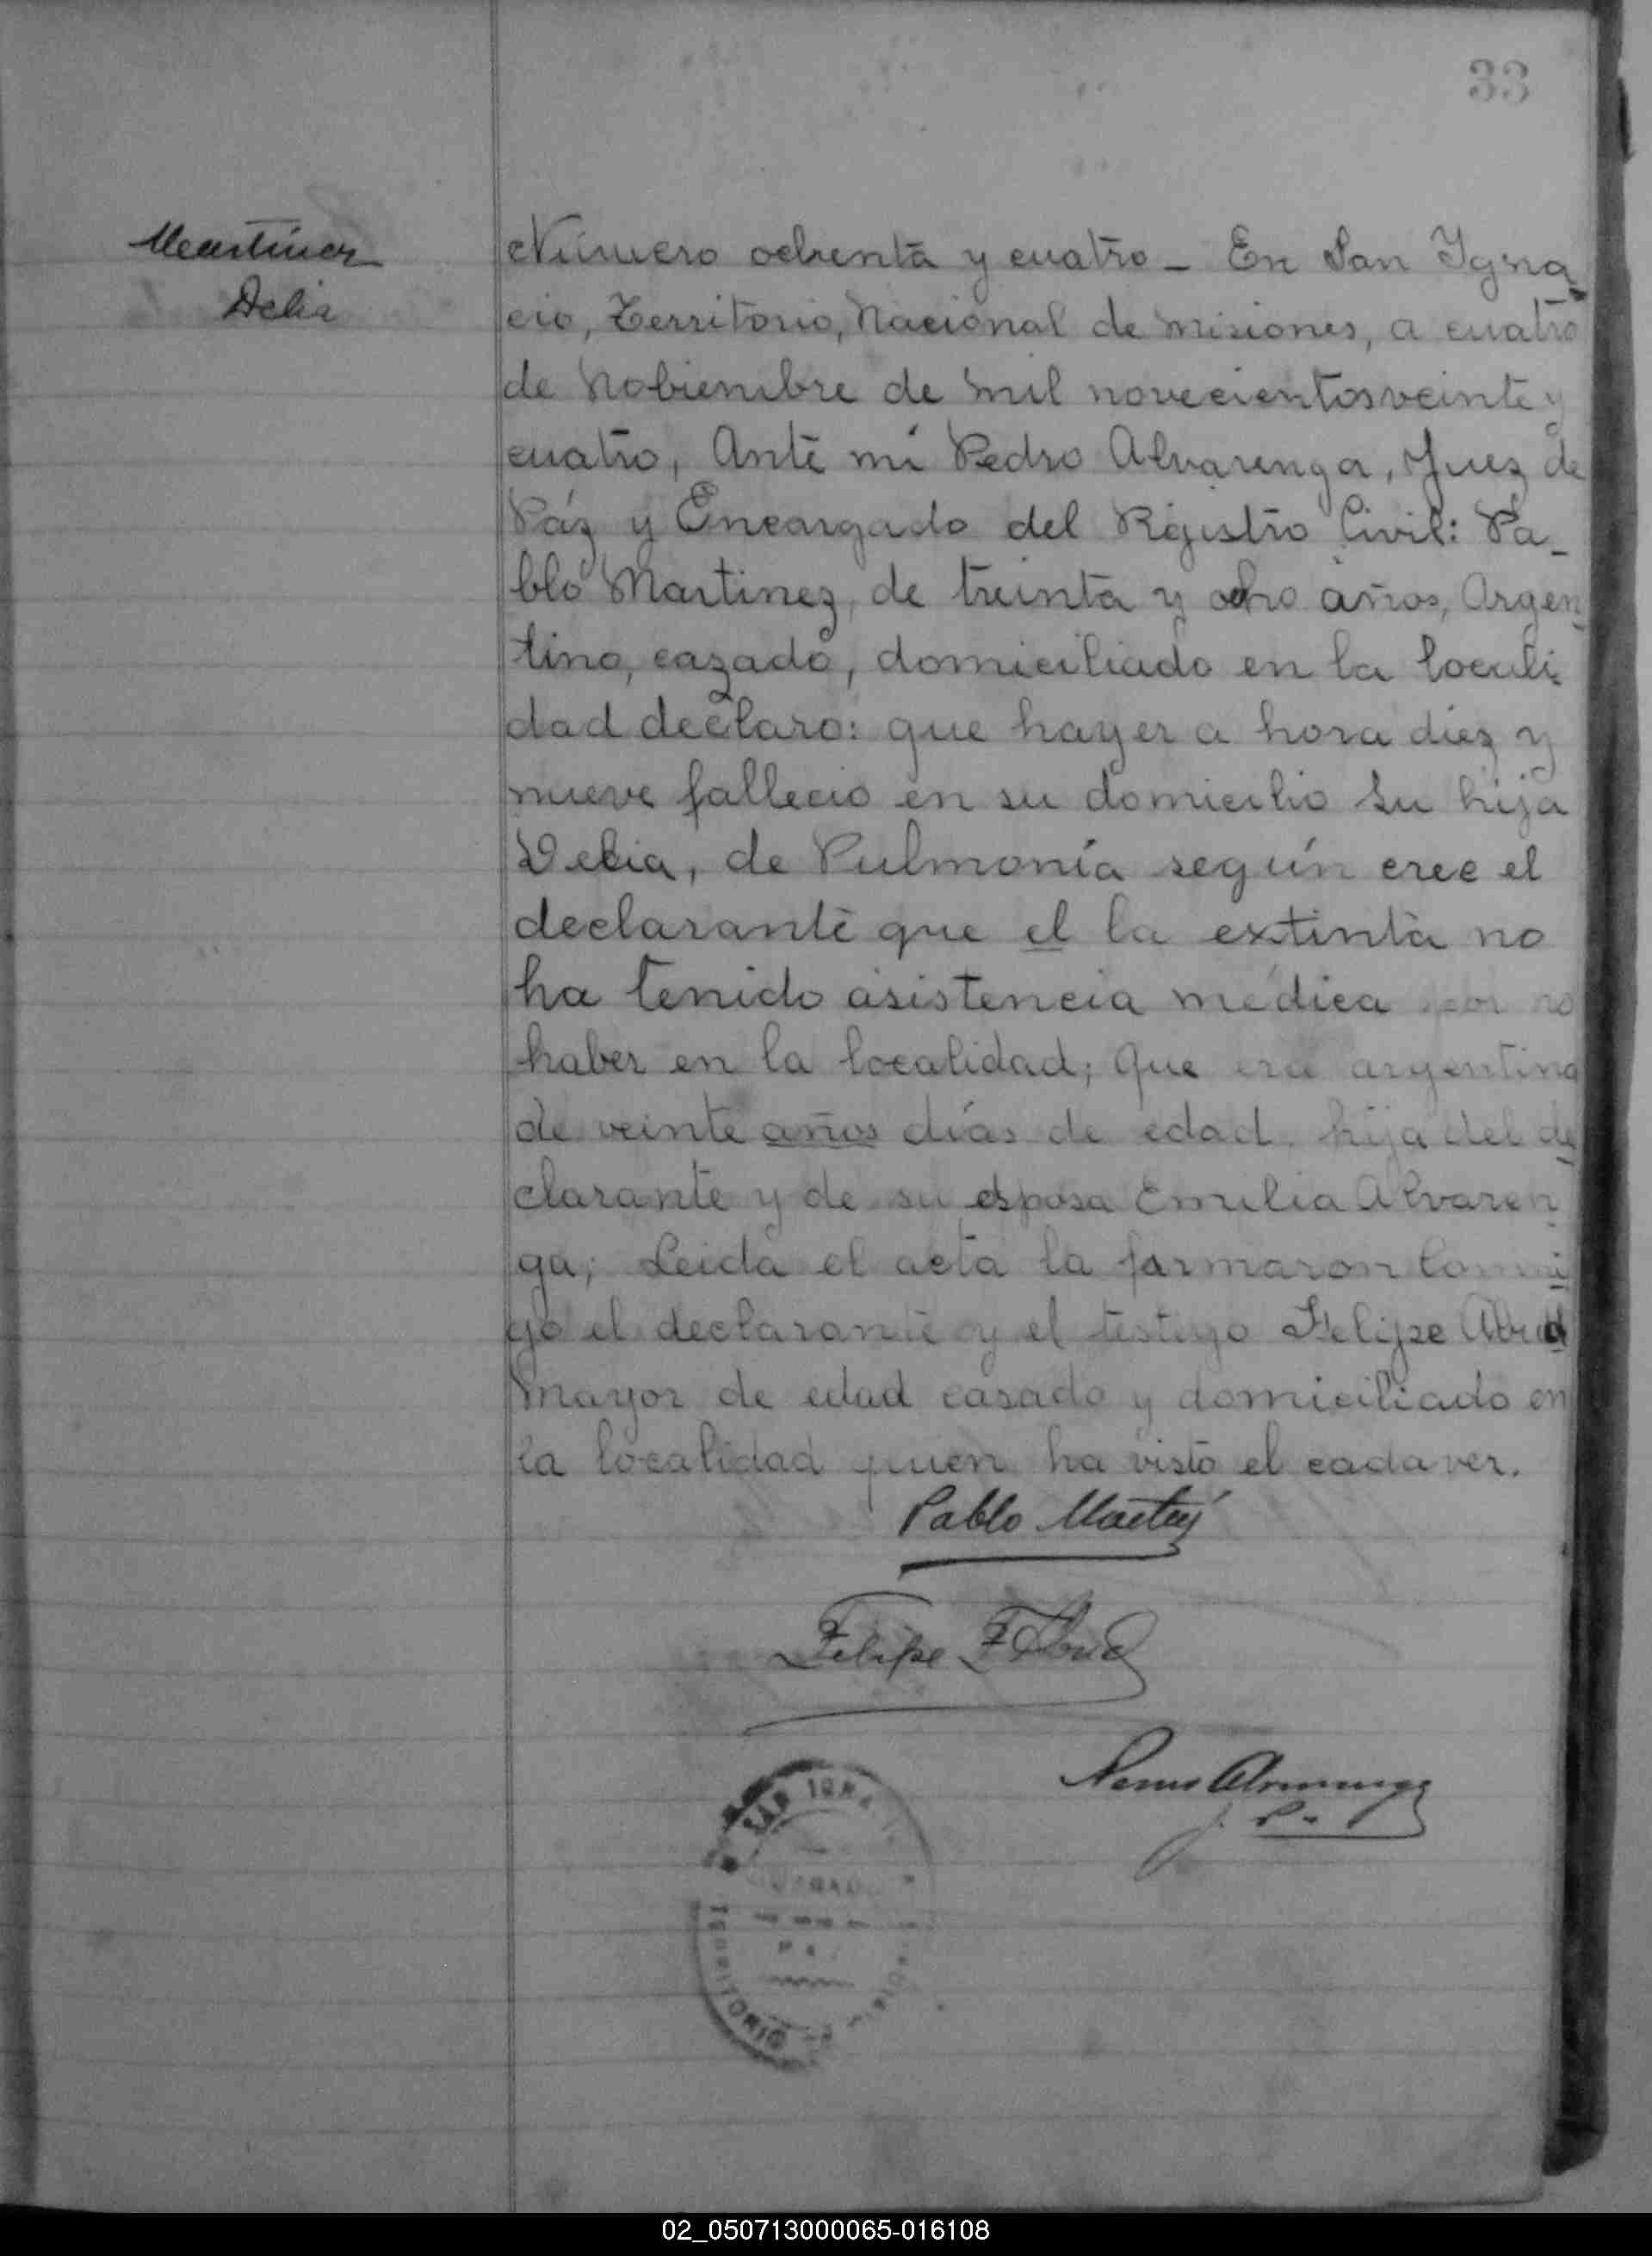 33
Martinez
Delia
Número ochenta y cuatro - En San Igna
cio, Territorio, Nacional de Misiones, a cuatro
de Nobiembre de mil novecientos veinte y
cuatro, Ante mi Pedro Alvarenga, Juez de
Páz y Encargado del Registro Civil: Pa-
blo Martinez, de treinta y ocho años, Argen
tino, cazado, domiciliado en la locali
dad declaro: que hayer a hora diez y
nueve fallecio en su domicilio su hija
Delia, de Pulmonía según cree el
declarante que el la extinta no
ha tenido asistencia médica por no
haber en la localidad; que era argentina
de veinte años días de edad, hija del de
clarante y de su esposa Emilia Alvaren
ga; Leida el acta la farmaron conmi
go el declarante y el testigo Felipe
Mayor de edad casado y domiciliado en
la localidad quien ha visto el cadaver.
Pablo Martinez
Felipe
J. P.
SAN IGNA
JUZGADO
TERRITORIO
02_050713000065-016108